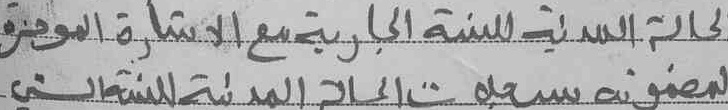 لحالة المدنية للسنة الجارية مع الاشارة الموجزة
لمضمونه بسجلات الحالة المدنية للسنة التي